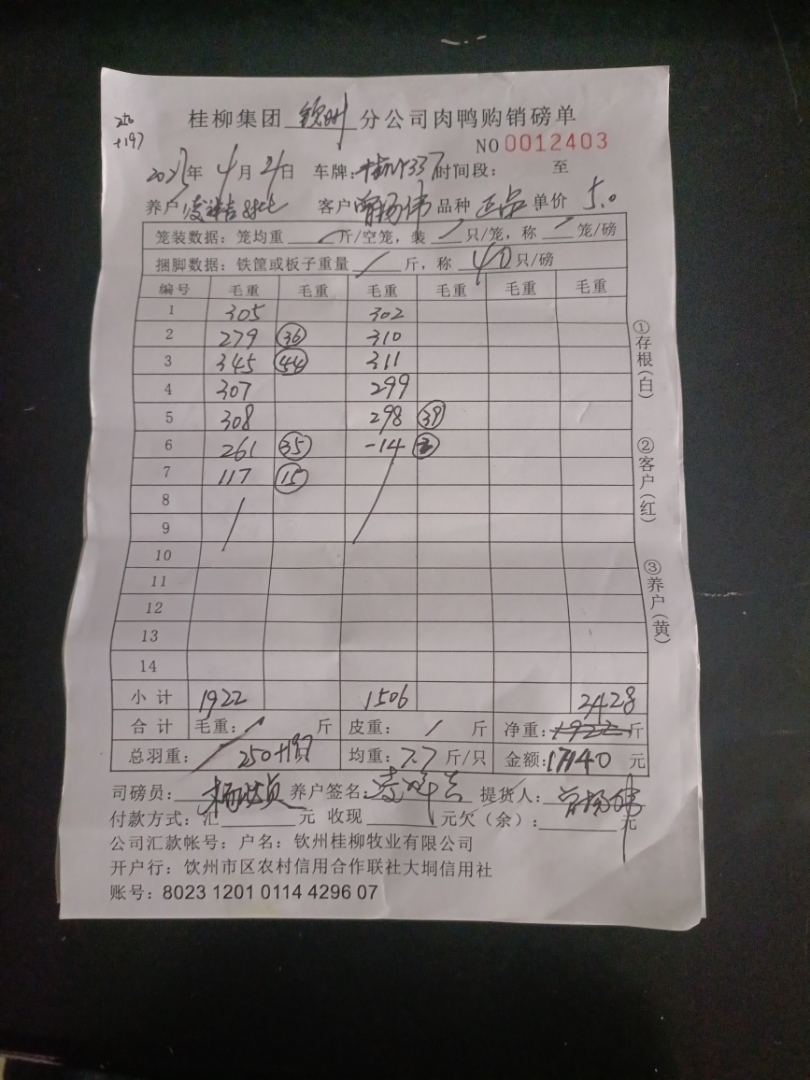 桂柳集团 钦州 分公司肉鸭购销磅单
250
+197
NO 0012403
2025年 4月21日 车牌: 337 时间段: 至
养户: 客户 曾杨伟 品种 正品 单价 5.0
笼装数据: 笼均重 / 斤/空笼, 装 / 只/笼, 称 / 笼/磅
捆脚数据: 铁筐或板子重量 / 斤, 称 40 只/磅
编号 毛重 毛重 毛重 毛重 毛重 毛重
1 305 302
2 279 36 310
3 345 44 311
4 307 299
5 308 298 39
6 261 35 -14
7 117 15
8
9
10
11
12
13
14
小计 1922 1506 2428
合计 毛重: / 斤 皮重: / 斤 净重: 1922 斤
总羽重: 250+197 均重: 7.7 斤/只 金额: 17140 元
司磅员: 养户签名: 提货人: 曾杨伟
付款方式: 汇 元 收现 元欠(余): 元
公司汇款帐号: 户名: 钦州桂柳牧业有限公司
开户行: 钦州市区农村信用合作联社大垌信用社
账号: 8023 1201 0114 4296 07
①存根(白)
②客户(红)
③养户(黄)